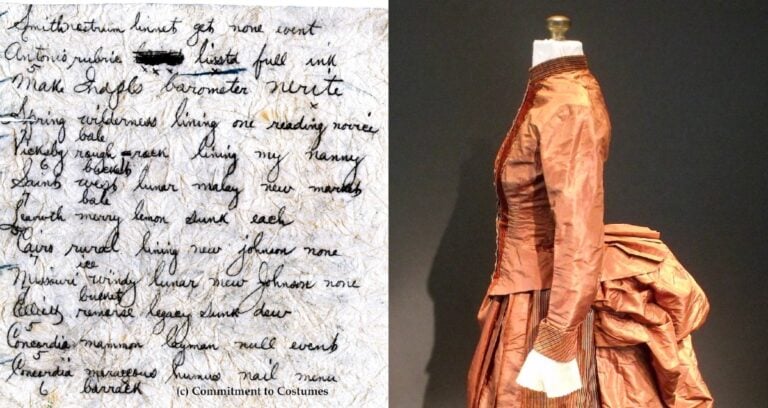 Smith restrain linnet get none event
Antonio rubric lissed full ink
5
Make Indpls barometer nerite
x
Spring wilderness lining one reading novice
7 bale
Vicksbg rough rack lining my nanny
6 bucket
Saints west lunar malay new markab
7 bale
Leavwth merry lemon sunk each
Cairo rural lining new johnson none
7 ice
Missouri windy lunar new Johnson none
bucket
Celliety remorse legacy sunk dew
5
Concordia mammon layman null events
5
Concordia meraccous humus nail menu
6 barrack
(c) Commitment to Costumes